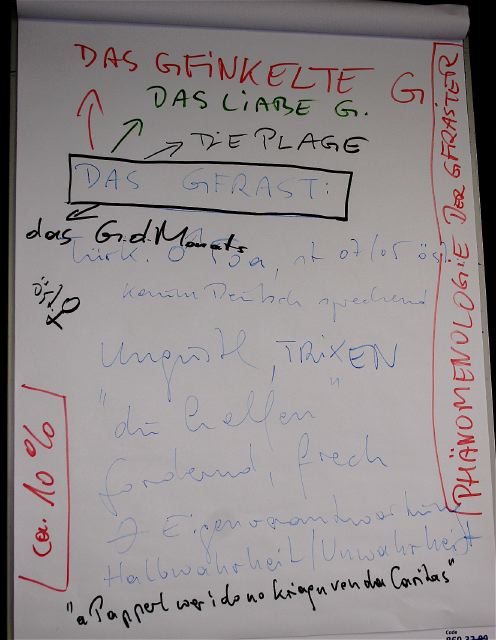 DAS GFINKELTE G.
DAS LIABE G.
DIE PLAGE
DAS GFRAST:
das G. d. Monats
Türk. 53a, st 07/05 öst.
kaum Deutsch sprechend
Ungustl, TRIXEN
"du helfen"
fordernd, frech
Eigenverantwortung
Halbwahrheit/Unwahrheit
"a Papperl wer i do no kriagn von da Caritas"
ca. 10%
PHÄNOMENOLOGIE DER GFRASTER